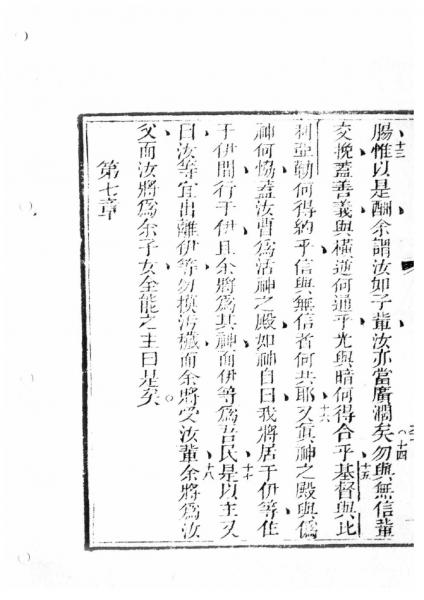 腸惟以是酬余謂汝如子輩汝亦當廣濶矣勿與無信輩
交挽蓋善義與橫逆何通乎光與暗何得合乎基督與比
利亞勒何得約乎信與無信者何共耶又眞神之殿與偽
神何恊蓋汝曹爲活神之殿如神自曰我將居于伊等住
于伊間行于伊且余將爲其神而伊等爲吾民是以主又
曰汝等宜出離伊等勿摸汚穢而余將受汝輩余將爲汝
父而汝將爲余子女全能之主曰是矣
第七章
十三
十四
十五
十六
十七
十八